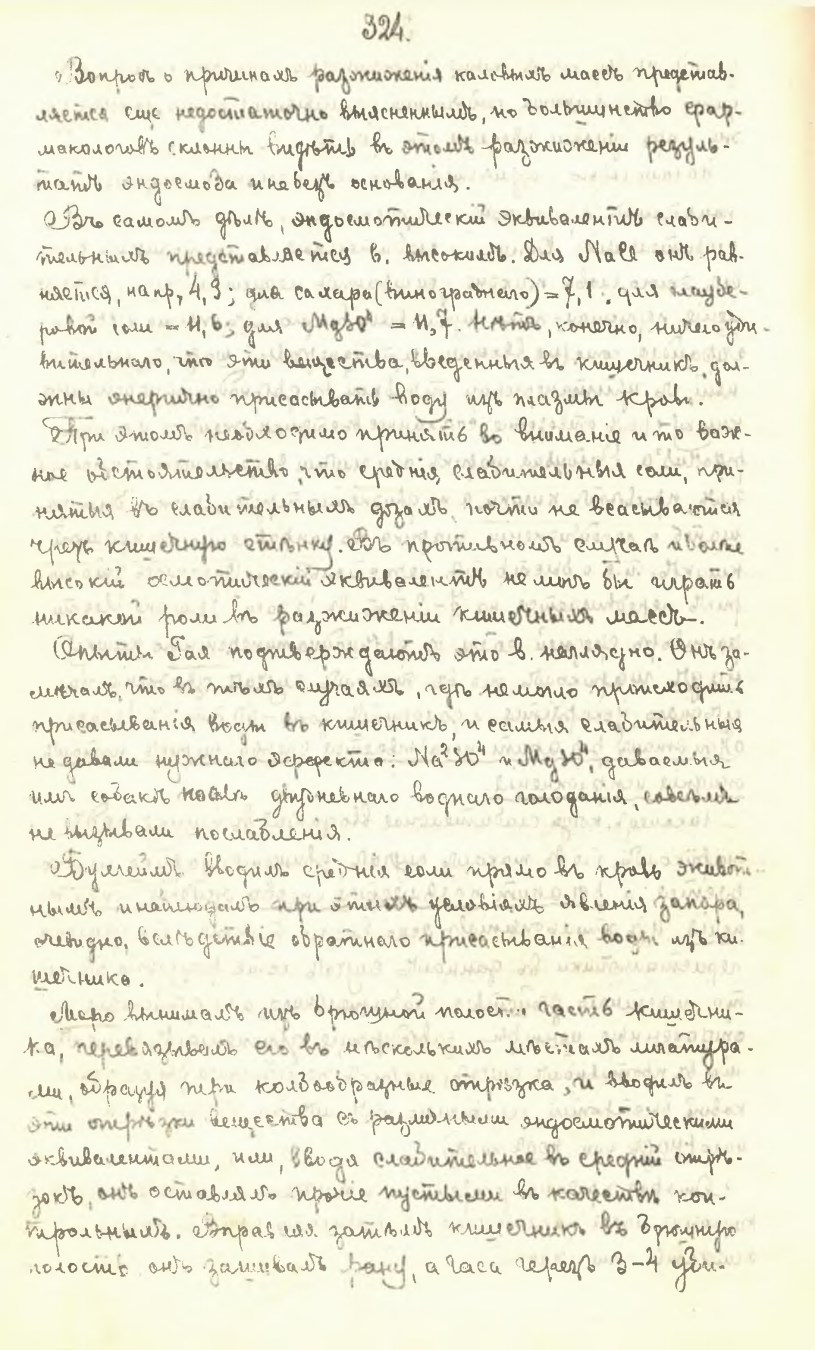 324.
Вопросъ о причинахъ разжиженія каловыхъ массъ представ-
ляется еще недостаточно выясненнымъ, но большинство фар-
макологовъ склонны видѣть въ этомъ разжиженіи резуль-
татъ эндосмоза и небезъ основанія.
Въ самомъ дѣлѣ, эндосмотическій эквивалентъ слаби-
тельныхъ представляется в. высокимъ. Для NaCl онъ рав-
няется, напр, 4,3; для сахара (винограднаго) = 7,1. для глаубе-
ровой соли = 11,6; для MgSO⁴ = 11,7. Нѣтъ, конечно, ничего уди-
вительнаго, что эти вещества, введенныя въ кишечникъ, дол-
жны энергично присасывать воду изъ плазмы крови.
При этомъ необходимо принять во вниманіе и то важ-
ное обстоятельство, что среднія слабительныя соли, при-
нятыя въ слабительныхъ дозахъ, почти не всасываются
чрезъ кишечную стѣнку. Въ противномъ случаѣ и болѣе
высокій осмотическій эквивалентъ не могъ бы играть
никакой роли въ разжиженіи кишечныхъ массъ.
Опыты Гая подтверждаютъ это в. наглядно. Онъ за-
мѣчалъ, что въ тѣхъ случаяхъ, гдѣ не могло происходить
присасыванія воды въ кишечникъ, и самыя слабительныя
не давали нужнаго эффекта: Na²SO⁴ и MgSO⁴, даваемыя
имъ собакѣ послѣ двудневнаго воднаго голоданія, совсѣмъ
не вызывали послабленія.
Бухгеймъ вводилъ среднія соли прямо въ кровь живот-
нымъ и наблюдалъ при этихъ условіяхъ явленія запора,
очевидно, вслѣдствіе обратнаго присасыванія воды изъ ки-
шечника.
Моро вынималъ изъ брюшной полости часть кишечни-
ка, перевязывалъ его въ нѣсколькихъ мѣстахъ лигатура-
ми, образуя три колбообразные отрѣзка, и вводилъ въ
эти отрѣзки вещества съ различными эндосмотическими
эквивалентами, или, вводя слабительное въ средній отрѣ-
зокъ, онъ оставлялъ прочіе пустыми въ качествѣ кон-
трольныхъ. Вправляя затѣмъ кишечникъ въ брюшную
полость онъ зашивалъ рану, а часа черезъ 3-4 уби-